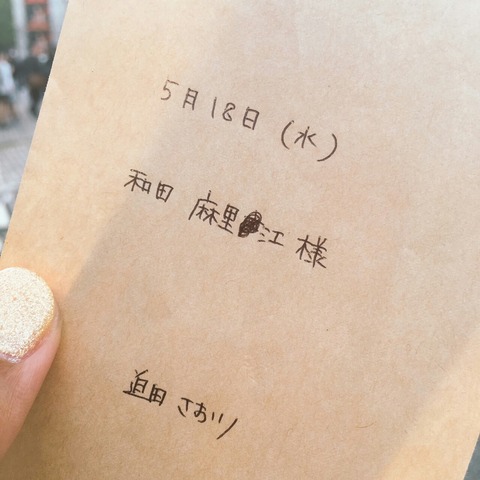 5月18日（水）
和田 麻里江 様
迫田 さおり